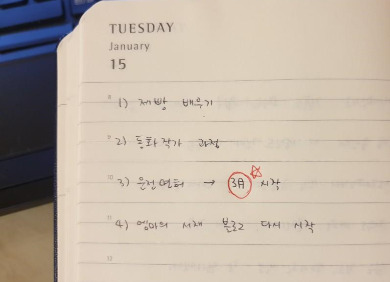 TUESDAY
January
15
8 1) 제빵 배우기
9 2) 동화작가 과정
10 3) 운전면허 → 3月 ☆ 시작
11 4) 엄마의 서재 블로그 다시 시작
12